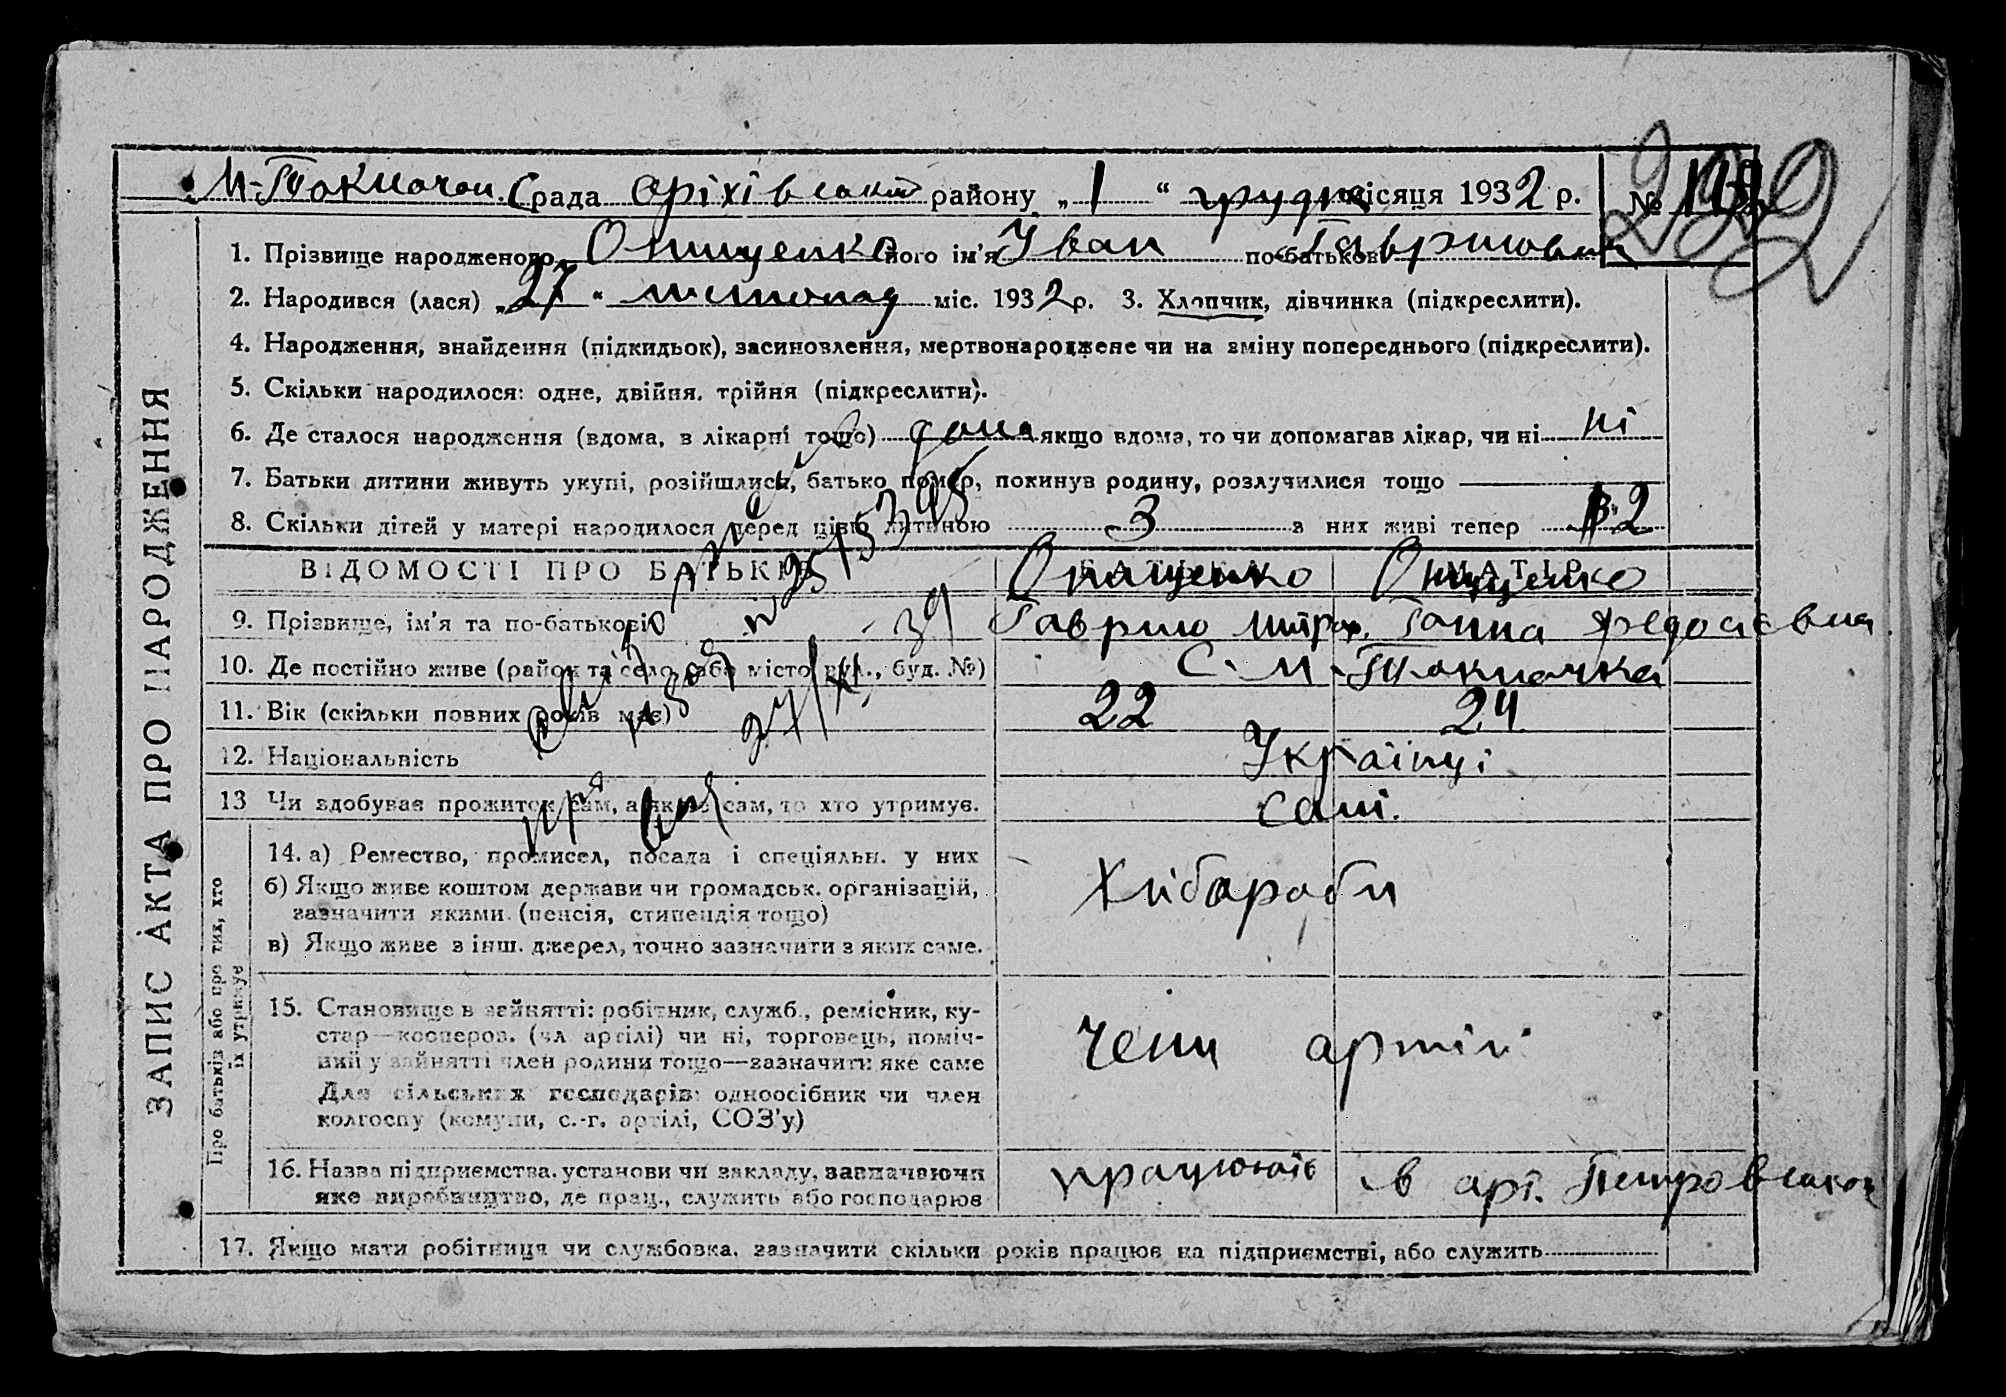 М-Токмачан. С рада Оріхівської району „ 1 “ грудня місяця 1932 р. №
1. Прізвище народженого Онищенко його ім’я Іван по-батькові Гаврилович
2. Народився (лася) „ 27 “ листопад міс. 1932 р. 3. Хлопчик, дівчинка (підкреслити).
4. Народження, знайдення (підкидьок), засиновлення, мертвонароджене чи на зміну попереднього (підкреслити).
5. Скільки народилося: одне, двійня, трійня (підкреслити).
6. Де сталося народження (вдома, в лікарні тощо) дома якщо вдома, то чи допомагав лікар, чи ні ні
7. Батьки дитини живуть укупі, розійшлися, батько помер, покинув родину, розлучилися тощо
8. Скільки дітей у матері народилося перед цією дитиною 3 з них живі тепер 2
ВІДОМОСТІ ПРО БАТЬКІВ БАТЬКО МАТІР
Онищенко Онищенко
9. Прізвище, ім’я та по-батькові Гаврило Митроф. Ганна Федосієвна
10. Де постійно живе (район та село, або місто, вул., буд. №) С. М-Токмачка
11. Вік (скільки повних років має) 22 24
12. Національність Українці
13 Чи здобуває прожиток сам, а як не сам, то хто утримує. самі.
14. а) Ремество, промисел, посада і спеціяльн. у них
б) Якщо живе коштом держави чи громадськ. організацій,
зазначити якими (пенсія, стипендія тощо)
Хлібороби
в) Якщо живе з інш. джерел, точно зазначити з яких саме.
15. Становище в зайнятті: робітник, служб., ремісник, ку-
стар—кооперов. (чл артілі) чи ні, торговець, поміч-
ний у зайнятті член родини тощо—зазначити яке саме
Для сільських господарів: одноосібник чи член
колгоспу (комуни, с.-г. артілі, СОЗ’у)
члени артілі
16. Назва підприємства, установи чи закладу, зазначаючи
яке виробництво, де прац., служить або господарює
працюють в арт. Петровського
17. Якщо мати робітниця чи службовка, зазначити скільки років працює на підприємстві, або служить
ЗАПИС АКТА ПРО НАРОДЖЕННЯ
Про батьків або про тих, хто
їх утримує